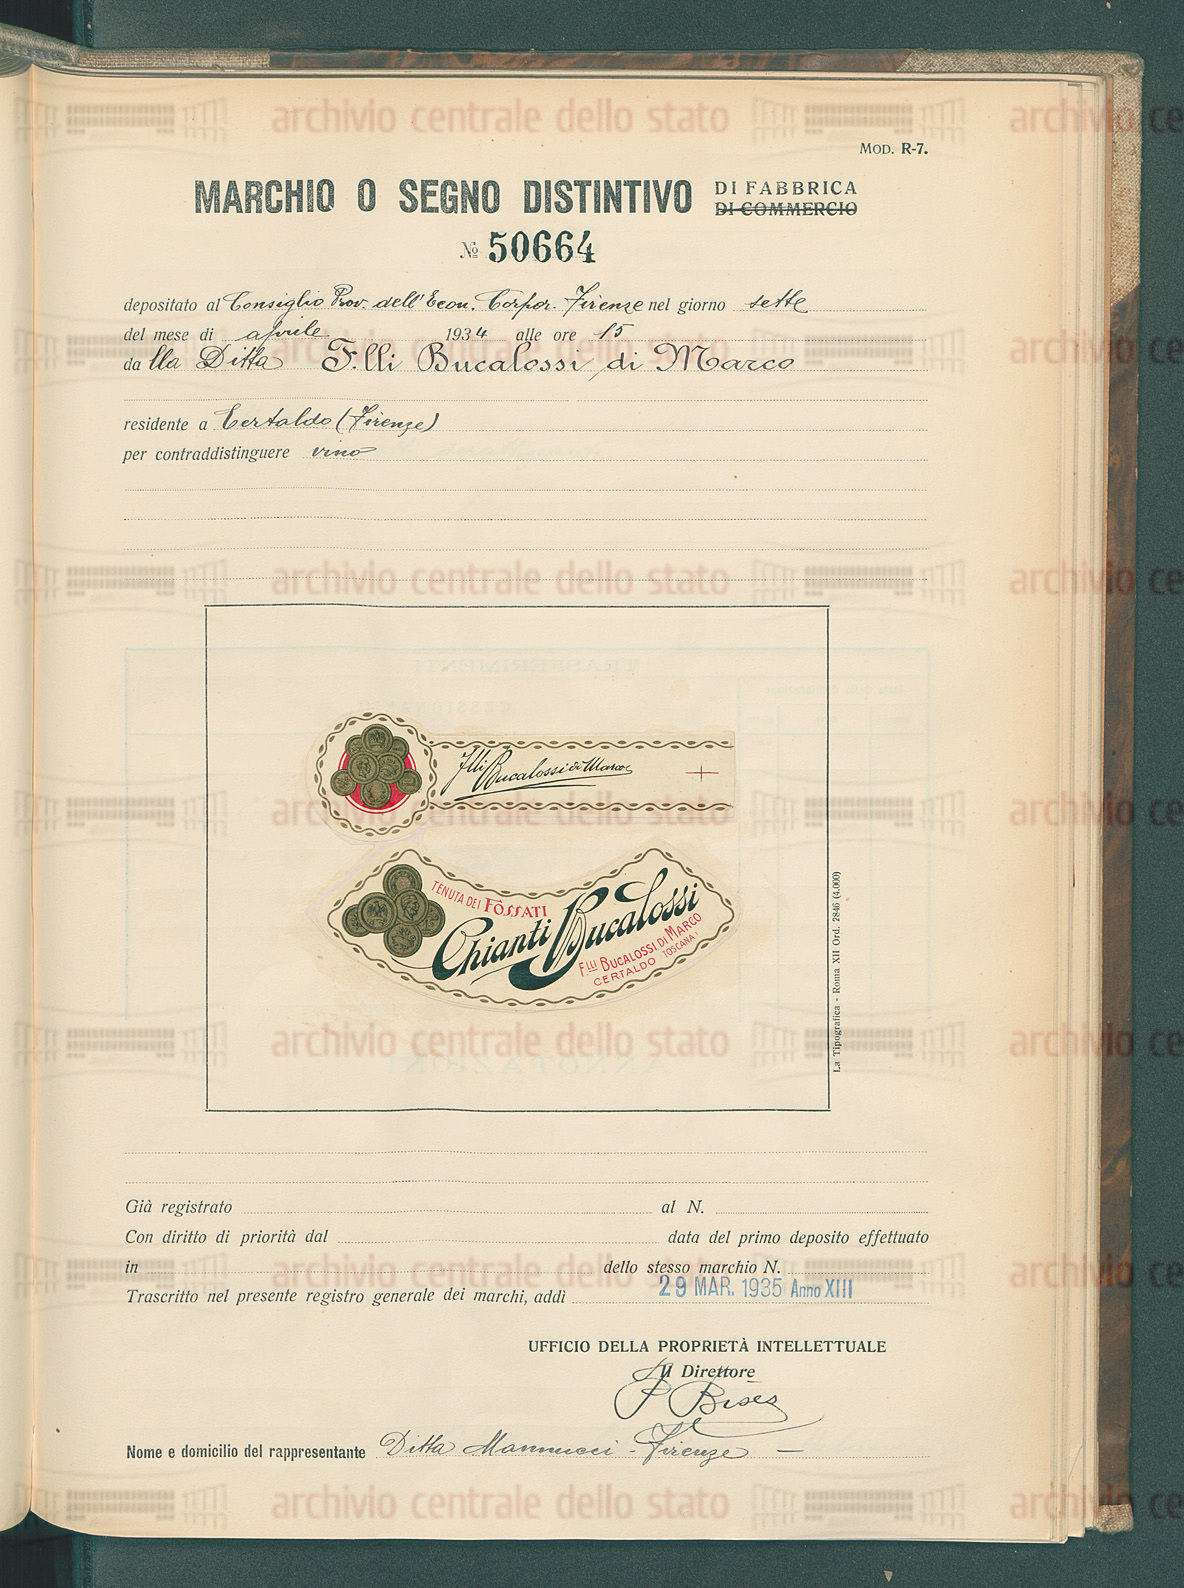 MOD. R-7.
MARCHIO O SEGNO DISTINTIVO DI FABBRICA
DI COMMERCIO
№ 50664
depositato al Consiglio Prov. dell'Econ. Corpor. Firenze nel giorno sette
del mese di aprile 1934 alle ore 15
da lla Ditta F.lli Bucalossi di Marco
residente a Certaldo (Firenze)
per contraddistinguere vino
F.lli Bucalossi di Marco
TENUTA DEI FOSSATI
Chianti Bucalossi
F.LLI BUCALOSSI DI MARCO
CERTALDO TOSCANA
La Tipografica - Roma XII Ord. 2846 (4.000)
Già registrato al N.
Con diritto di priorità dal data del primo deposito effettuato
in dello stesso marchio N.
Trascritto nel presente registro generale dei marchi, addì 29 MAR. 1935 Anno XIII
UFFICIO DELLA PROPRIETÀ INTELLETTUALE
Il Direttore
Nome e domicilio del rappresentante Ditta Mannucci - Firenze -
archivio centrale dello stato